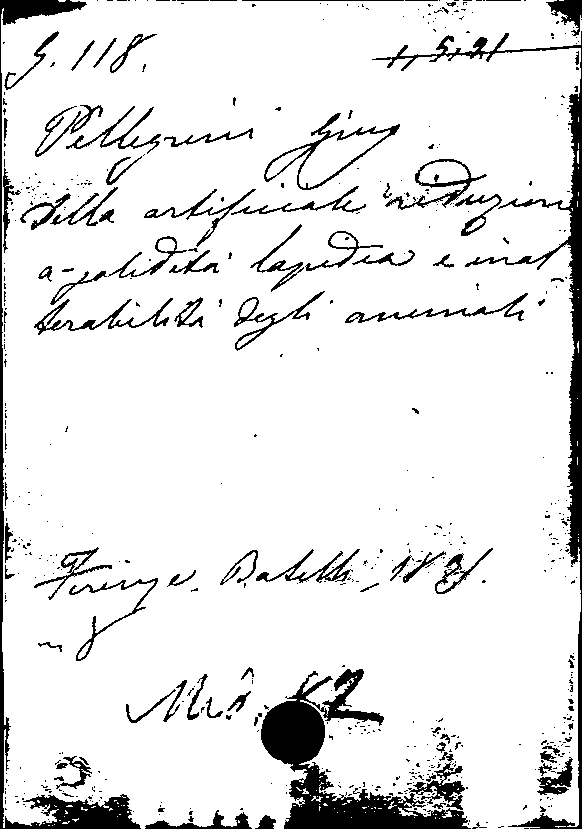 S. 118.
1, 5, 21
Pellegrini Gius.
Della artificiale riduzione
a solidità lapidea e inal
terabilità degli animali
Firenze. Batelli, 18
Med.